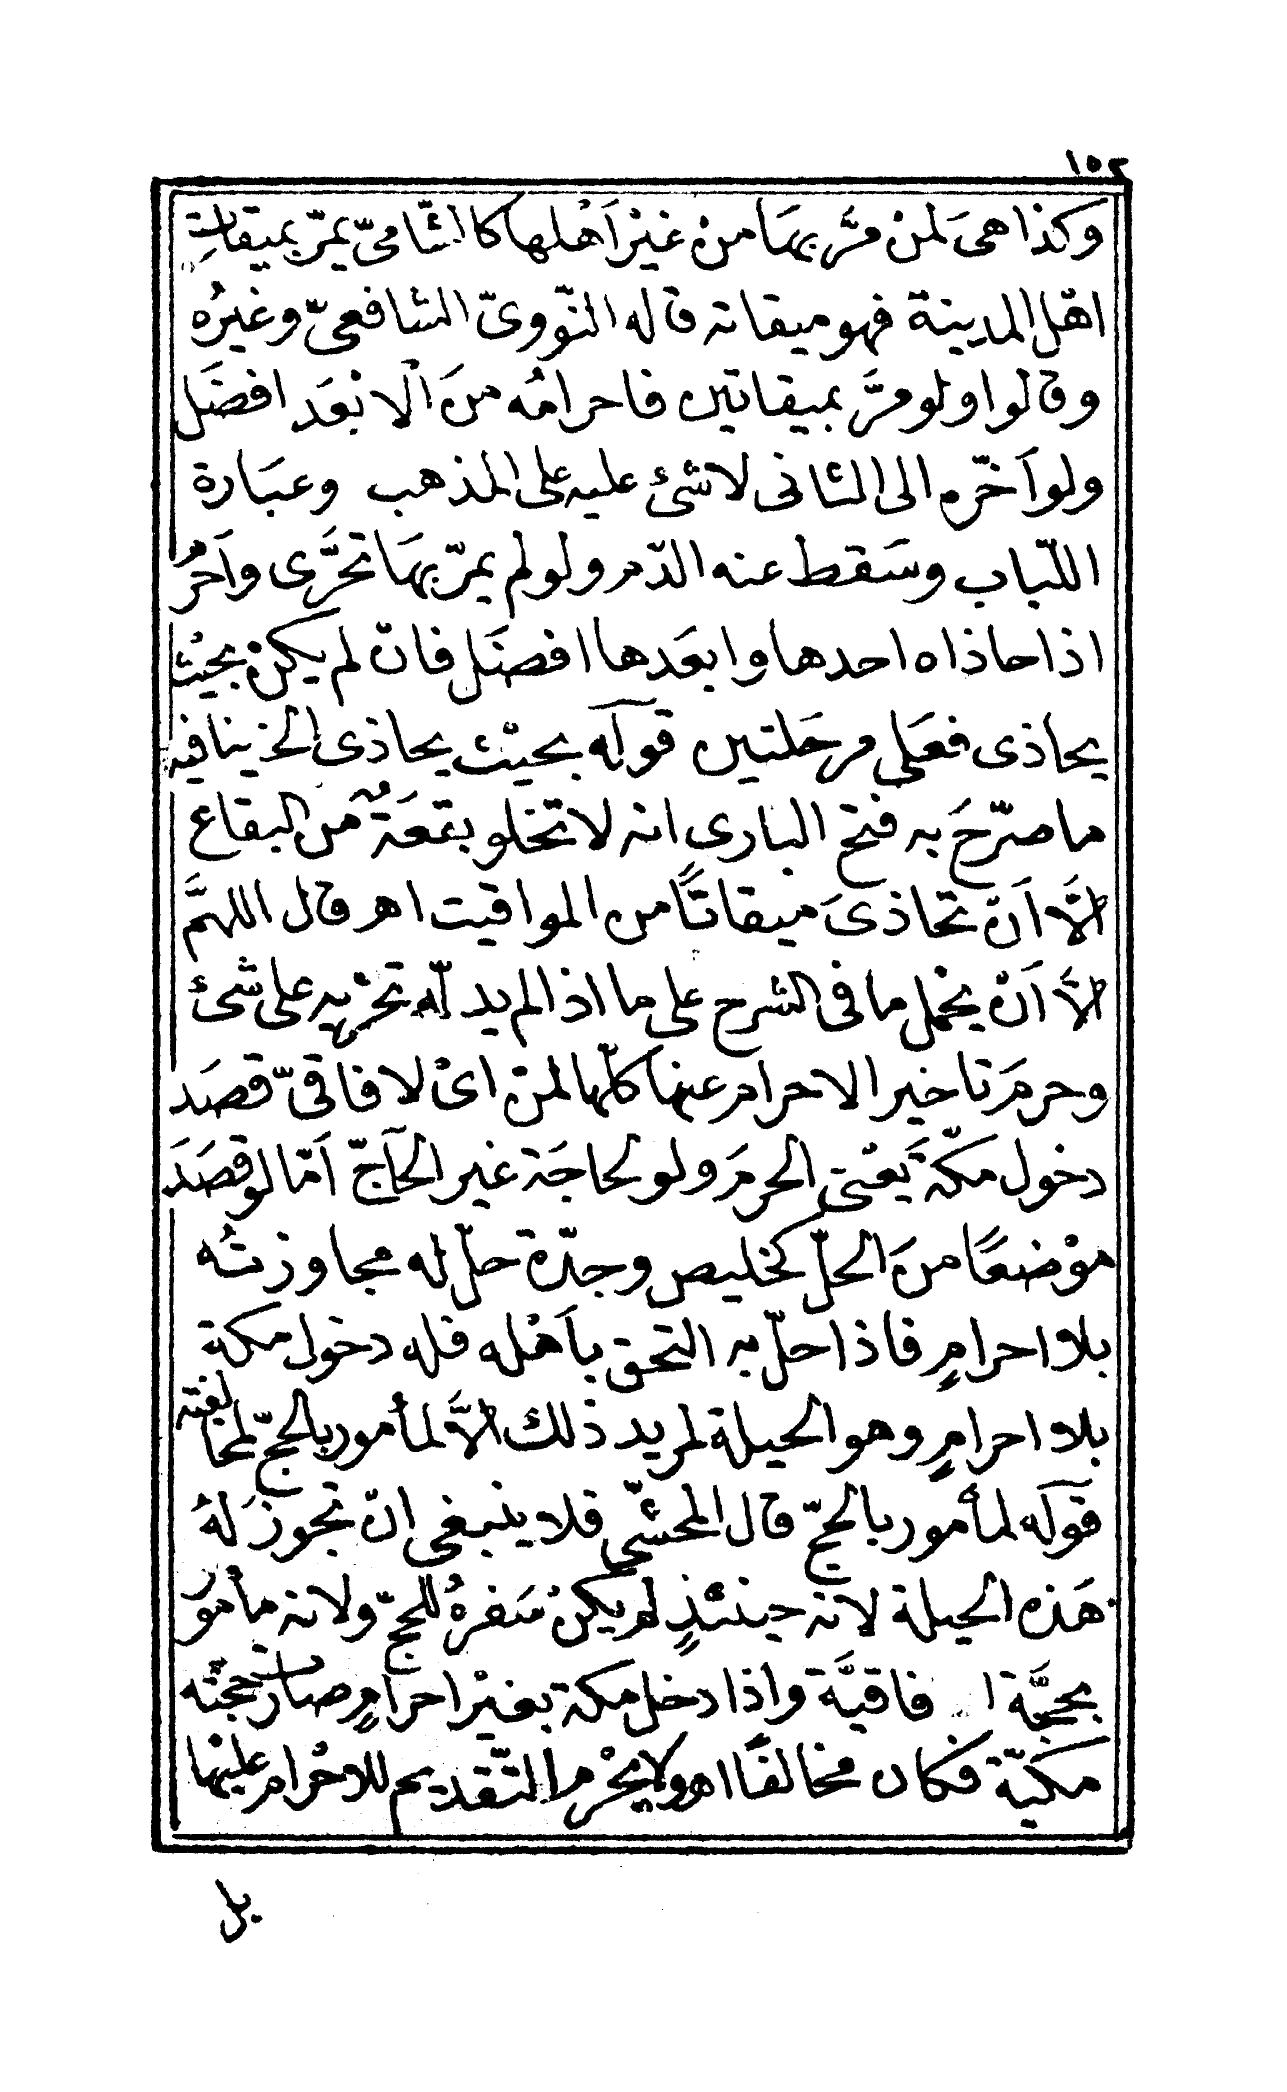 ١٥٢
وكذا هىَ لمنْ مرَّ بهَا منْ غيْرِ اَهْلها كالشّامىّ يمرّ بميقاتِ
اهْل المدينة فهو ميقاته قاله النّووىّ الشافعىّ وغيرُه
وقالوا ولو مرَّ بميقاتين فاحرامُه منَ الْابْعَد افضَل
ولو اَخّره الى الثانى لا شئ عليه على المذهب وعبَارة
اللّباب وسَقط عنه الدّم ولو لم يمرّ بهَا تحَرَّى واَحْرَمُ
اذا حاذاه احدها وابعَدها افضَل فانْ لم يكنْ بحيْث
يحاذى فعَلى مرحَلتين قوله بحيْث يحاذى الخ ينافيه
ما صرّحَ به فتح البارى انه لا تخلو بقعَةٌ من البقاع
الَّا اَنْ تحَاذىَ ميقاتًا من المواقيت اهر قال اللهمَّ
الَّا اَنْ يحْمل ما فى الشرح على ما اذا لم يبد له تحرّيه على شئ
وحرمَ تاخير الاحرام عنها كلّها لمنْ اىْ لافاقىّ قصَد
دخول مكّة يَعْنى الحرمَ ولو لحاجَة غير الحاجّ اَمّا لو قصَدَ
موْضعًا منَ الحلّ كخليص وجدّة حلّ له مجاوزتُه
بلا احرامٍ فاذا حلّ به التحق باَهْله فله دخول مكة
بلا احرامٍ وهو الحيلة لمريد ذلك الَّا لمأمور بالحجّ لمخالفته
قوله لمأمور بالحجّ قال المحشّى فلا ينبغى انْ تجوزَ لهُ
هَذه الحيلة لانه حينئذٍ لم يكنْ سَفرهُ للحجّ ولانه مأمور
بحجَّة ا فاقيَّة واذا دخل مكة بغيْر احرامٍ صارتْ حجّته
مكيّة فكان مخالفًا اهو ولا يحْرم التّقديم للاحْرام عليْها
بل